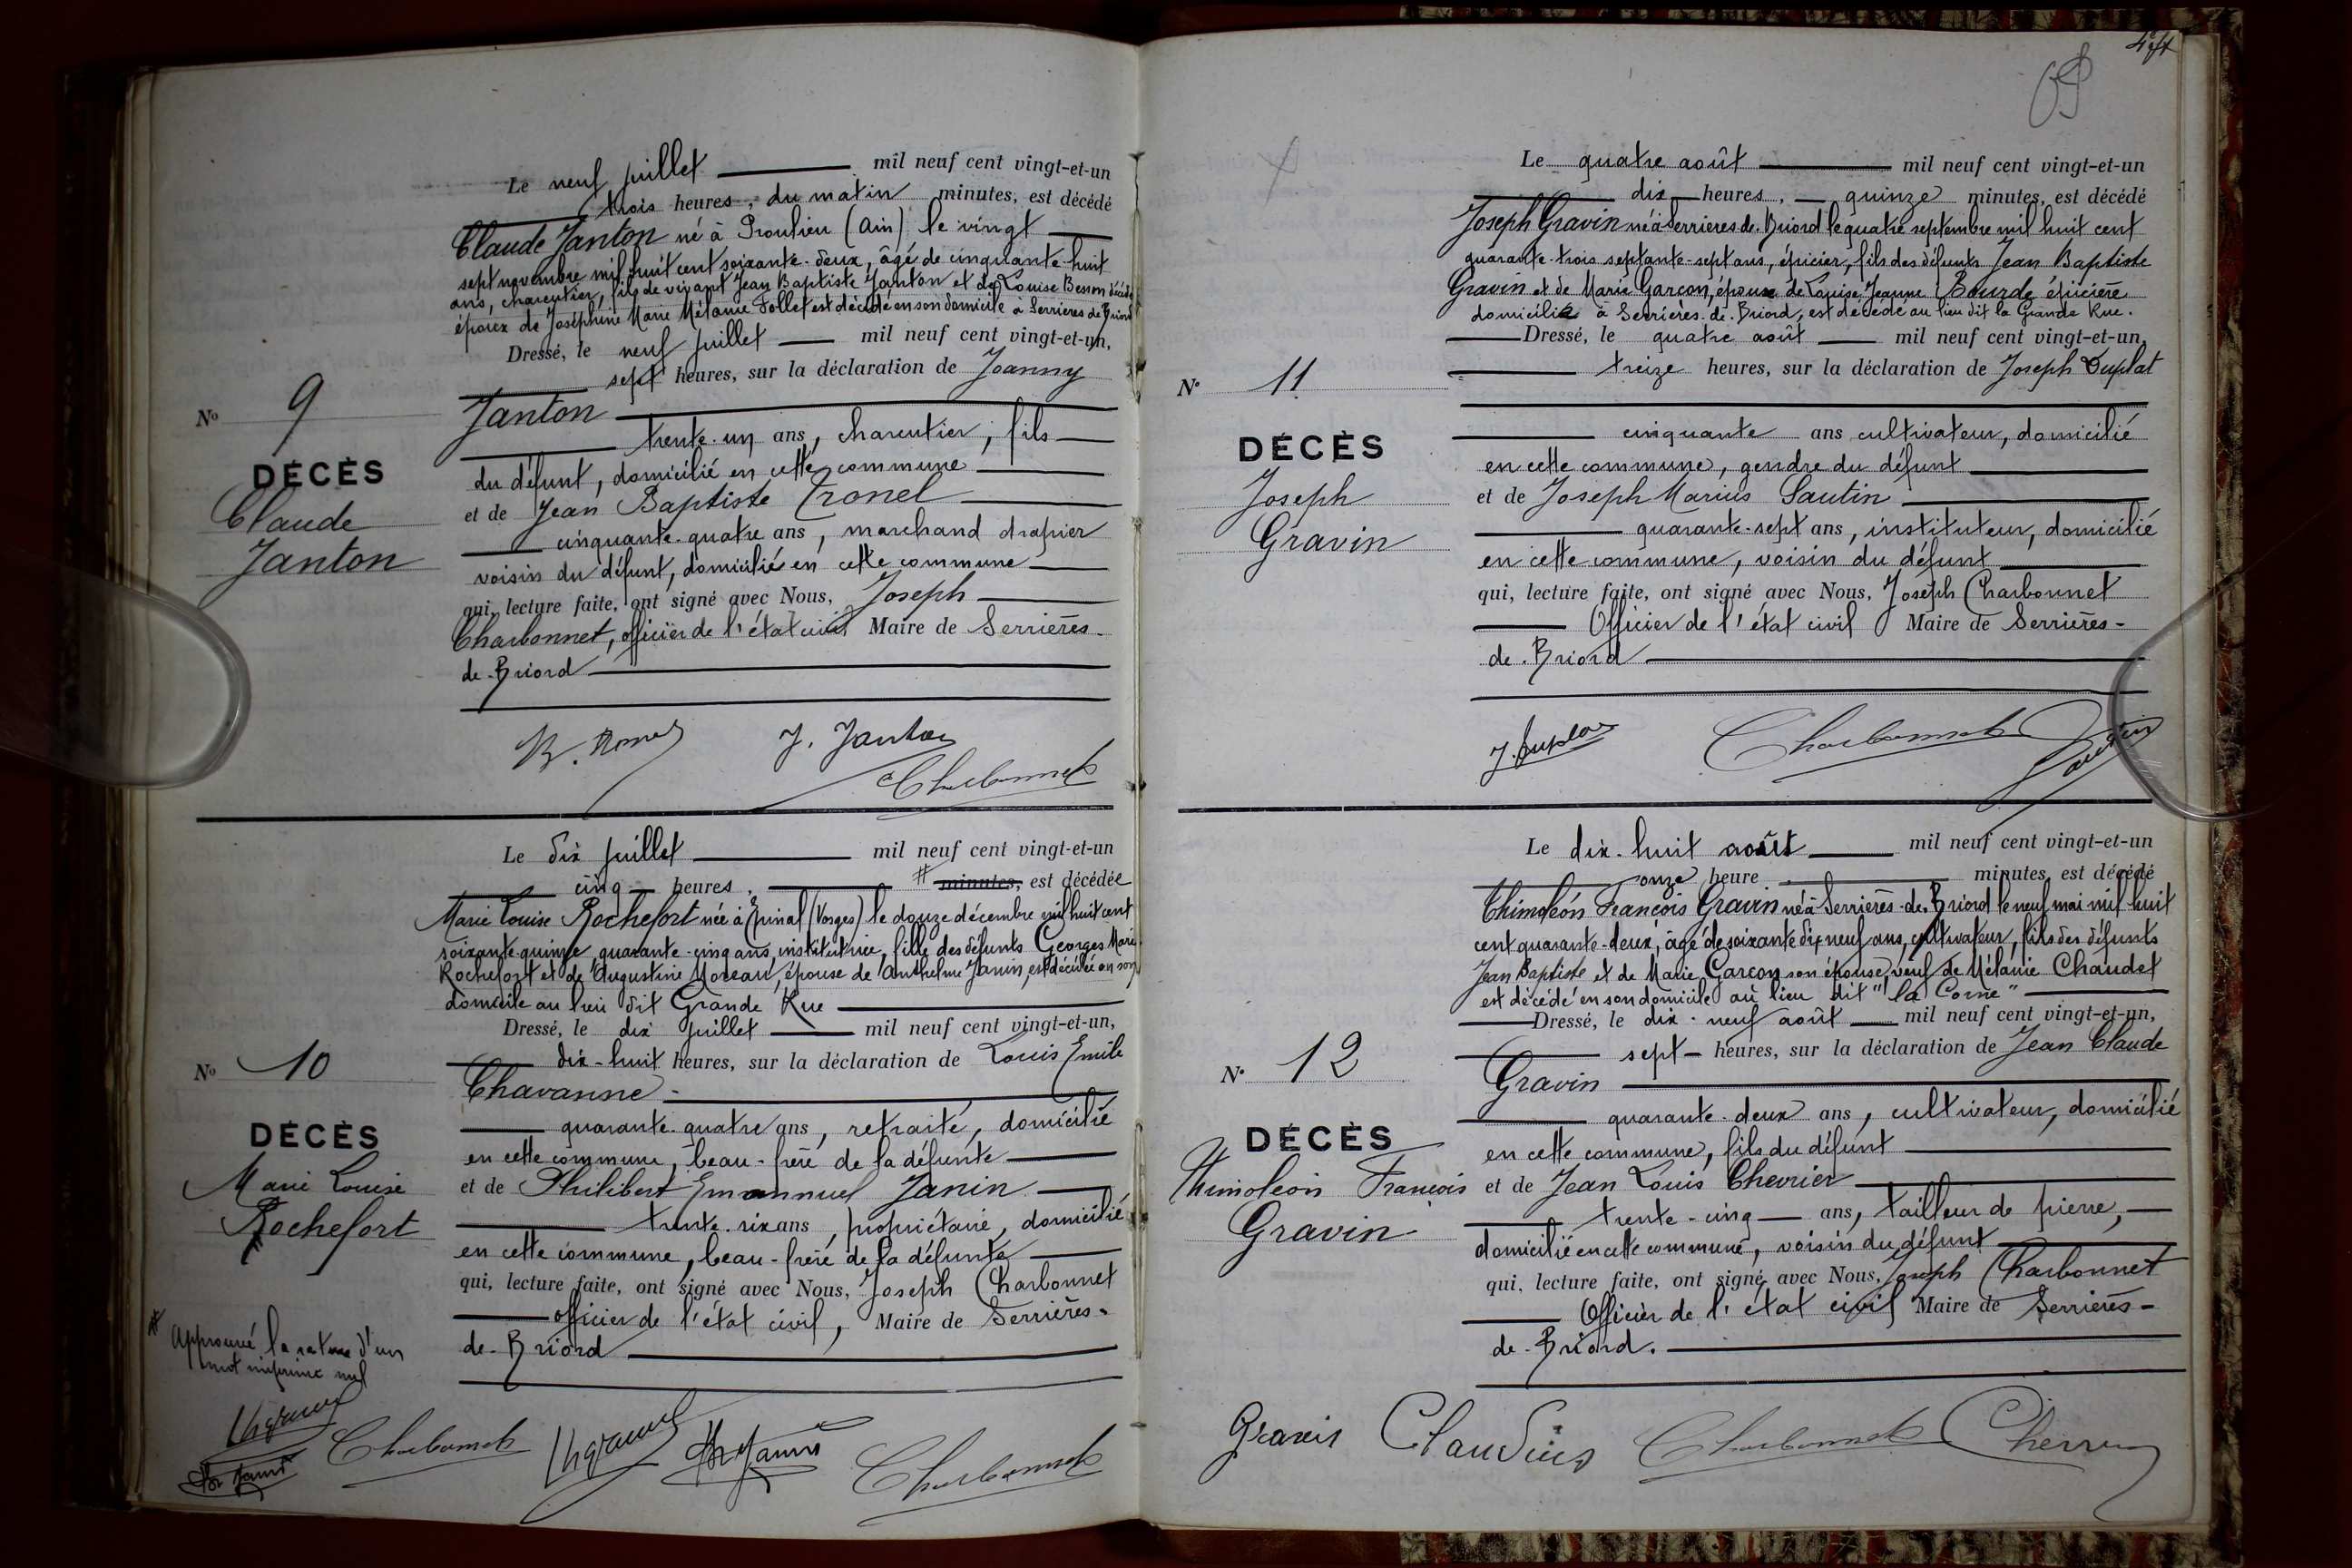 Le neuf juillet mil neuf cent vingt-et-un
trois heures, du matin minutes, est décédé
Claude Janton né à Proulieu (Ain) le vingt
sept novembre mil huit cent soixante-deux, âgé de cinquante-huit
ans, charcutier, fils de vivant Jean Baptiste Janton et de Louise Besson décédée
époux de Joséphine Marie Mélanie Follet est décédé en son domicile à Serrières de Briord
Dressé, le neuf juillet mil neuf cent vingt-et-un,
sept heures, sur la déclaration de Joanny
Janton
trente-un ans, charcutier, fils
du défunt, domicilié en cette commune
et de Jean Baptiste Tronel
cinquante-quatre ans, marchand drapier
voisin du défunt, domicilié en cette commune
qui, lecture faite, ont signé avec Nous, Joseph
Charbonnet, officier de l'état civil Maire de Serrières-
de-Briord
No 9
DÉCÈS
Claude
Janton
J. Janton
Charbonnet
Le dix juillet mil neuf cent vingt-et-un
cinq heures, # minutes, est décédée
Marie Louise Rochefort née à Epinal (Vosges) le douze décembre mil huit cent
soixante quinze quarante-cinq ans, institutrice, fille des défunts Georges Marie
Rochefort et de Augustine Moreau, épouse de Anthelme Janin, est décédée en son
domicile au lieu dit Grande Rue
Dressé, le dix juillet mil neuf cent vingt-et-un,
dix-huit heures, sur la déclaration de Louis Emile
Chavanne
quarante-quatre ans, retraité, domicilié
en cette commune, beau-frère de la défunte
et de Philibert Emmanuel Janin
trente-six ans, propriétaire, domicilié
en cette commune, beau-frère de la défunte
qui, lecture faite, ont signé avec Nous, Joseph Charbonnet
officier de l'état civil, Maire de Serrières-
de-Briord
No 10
DÉCÈS
Marie Louise
Rochefort
# Approuvé la rature d'un
mot imprimé nul
Charbonnet
Janin
Charbonnet
Le quatre août mil neuf cent vingt-et-un
dix heures, quinze minutes, est décédé
Joseph Gravin né à Serrieres-de-Briord le quatre septembre mil huit cent
quarante-trois septante-sept ans, épicier, fils des défunts Jean Baptiste
Gravin et de Marie Garçon, époux de Louise Jeanne Bourde épicière
domiciliée à Serrières-de-Briord, est décédé au lieu dit la Grande Rue.
Dressé, le quatre août mil neuf cent vingt-et-un,
treize heures, sur la déclaration de Joseph Duplat
cinquante ans cultivateur, domicilié
en cette commune, gendre du défunt
et de Joseph Marius Sautin
quarante-sept ans, instituteur, domicilié
en cette commune, voisin du défunt
qui, lecture faite, ont signé avec Nous, Joseph Charbonnet
Officier de l'état civil Maire de Serrières-
de-Briord
No 11
DÉCÈS
Joseph
Gravin
J. Duplat
Charbonnet
Sautin
Le dix-huit août mil neuf cent vingt-et-un
onze heure minutes, est décédé
Thimoléon François Gravin né à Serrières-de-Briord le neuf mai mil huit
cent quarante-deux, âgé de soixante dix neuf ans, cultivateur, fils des défunts
Jean Baptiste et de Marie Garçon son épouse, veuf de Mélanie Chaudet
est décédé en son domicile au lieu dit "la Corne"
Dressé, le dix-neuf août mil neuf cent vingt-et-un,
sept heures, sur la déclaration de Jean Claude
Gravin
quarante-deux ans, cultivateur, domicilié
en cette commune, fils du défunt
et de Jean Louis Chevrier
trente-cinq ans, tailleur de pierre,
domicilié en cette commune, voisin du défunt
qui, lecture faite, ont signé avec Nous, Joseph Charbonnet
Officier de l'état civil Maire de Serrières-
de-Briord.
No 12
DÉCÈS
Thimoléon François
Gravin
Gravin Claudius Charbonnet